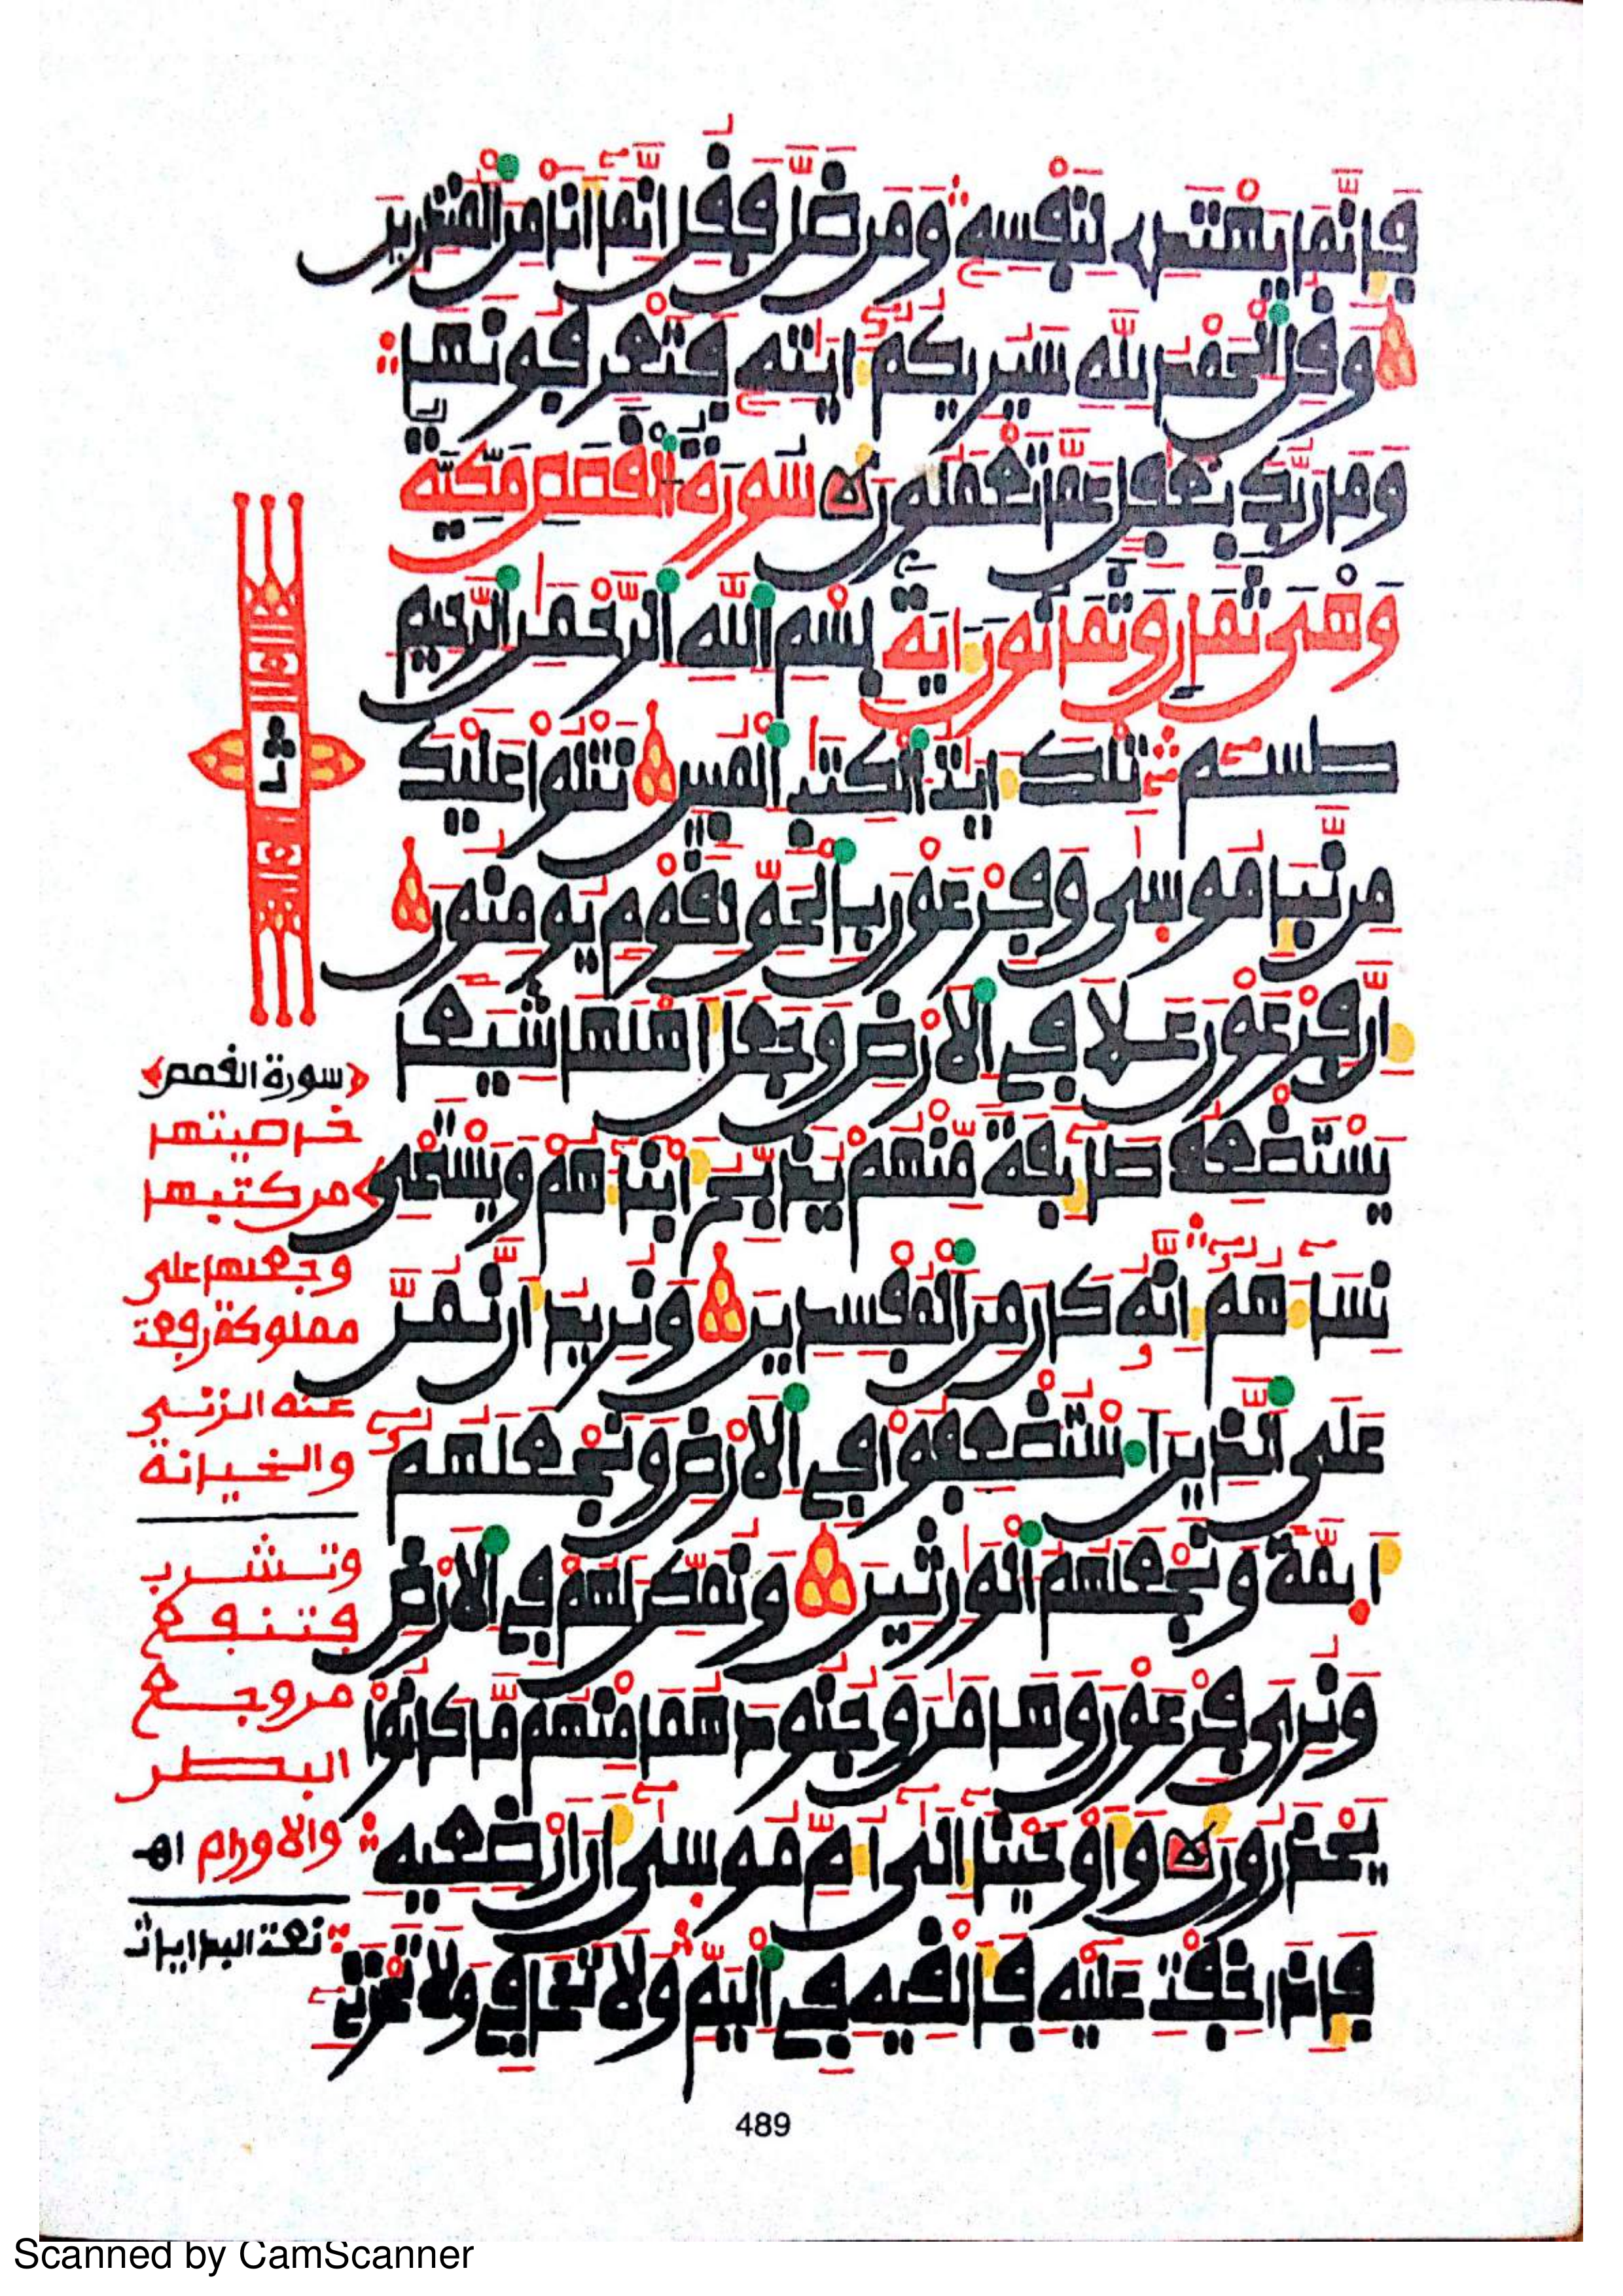 فإنما يهتدي لنفسه ومن ضل فقل إنما أنا من المنذرين
وقل الحمد لله سيريكم ءايته فتعرفونها
وما ربك بغفل عما تعملون سورة القصص مكية
وهي ثمان وثمانون ءاية بسم الله الرحمن الرحيم
طسم تلك ءايت الكتب المبين نتلوا عليك
من نبإ موسى وفرعون بالحق لقوم يومنون
إن فرعون علا في الارض وجعل أهلها شيعا
يستضعف طائفة منهم يذبح أبناءهم ويستحي
نساءهم إنه كان من المفسدين ونريد أن نمن
على الذين استضعفوا في الارض ونجعلهم
أيمة ونجعلهم الوارثين ونمكن لهم في الارض
ونري فرعون وهامان وجنودهما منهم ما كانوا
يحذرون وأوحينا إلى أم موسى أن ارضعيه
فإذا خفت عليه فألقيه في اليم ولا تخافي ولا تحزني
سورة القصص
خاصيتها
من كتبها
وجعلها على
مملوكة رفعت
عنه الزنى
والخيانة
وتشرب
فتنفع
من وجع
البطن
والاورام اهـ
489
Scanned by CamScanner